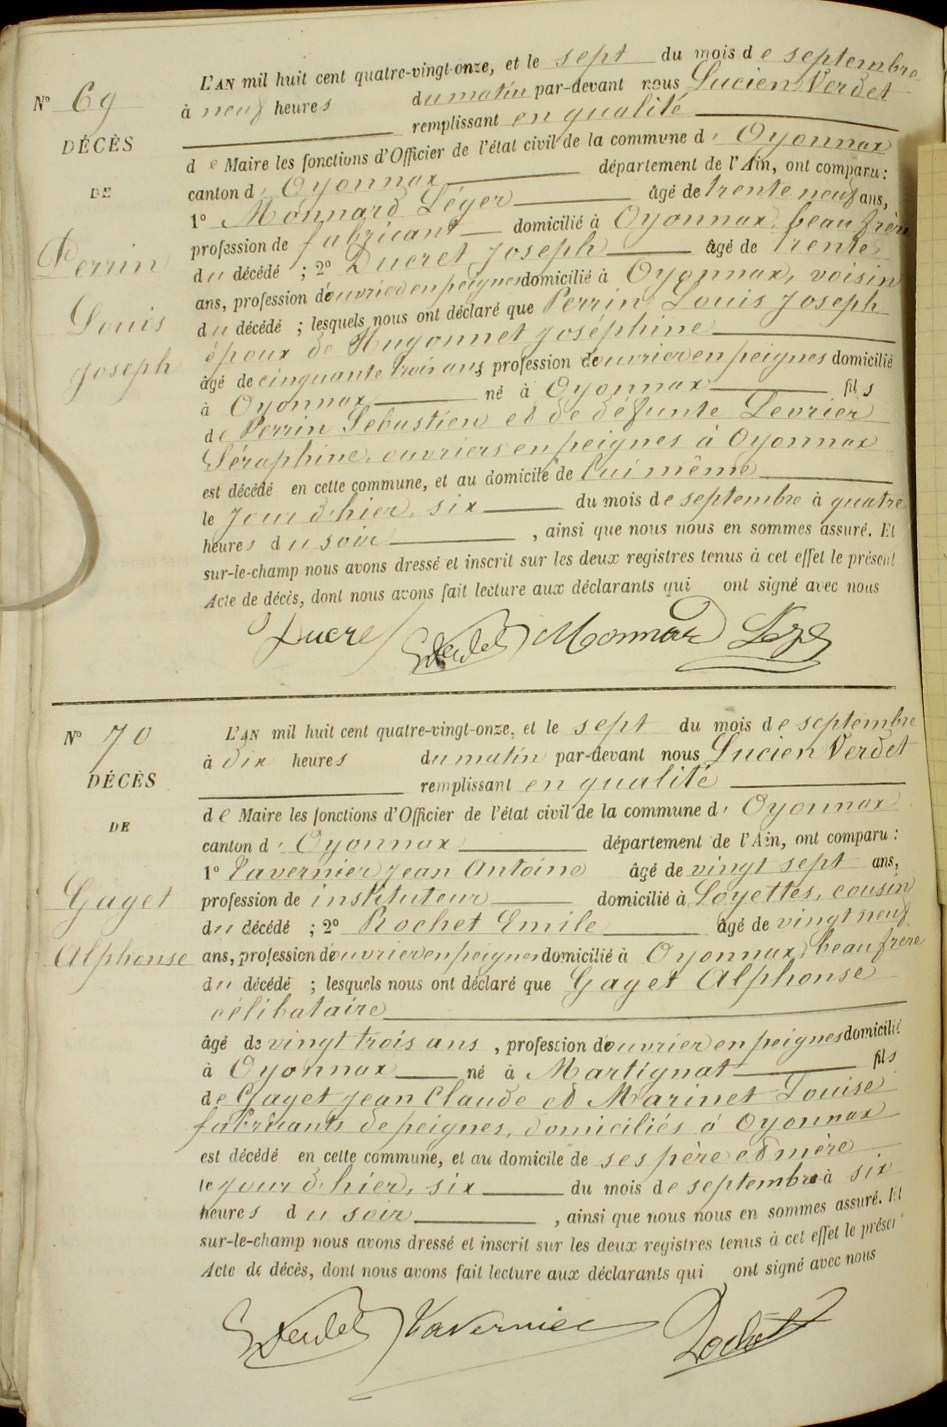 N° 69
DÉCÈS
DE
Perrin
Louis
Joseph
L'AN mil huit cent quatre-vingt-onze, et le sept du mois de septembre
à neuf heures du matin par-devant nous Lucien Verdet
remplissant en qualité
de Maire les fonctions d'Officier de l'état civil de la commune d' Oyonnax
canton d' Oyonnax département de l'Ain, ont comparu :
1° Monnard Léger âgé de trente neuf ans,
profession de fabricant domicilié à Oyonnax, beau frère
du décédé ; 2° Ducret Joseph âgé de trente
ans, profession d'ouvrier en peignes domicilié à Oyonnax, voisin
du décédé ; lesquels nous ont déclaré que Perrin Louis Joseph
époux de Hugonnet Joséphine
âgé de cinquante trois ans, profession d'ouvrier en peignes domicilié
à Oyonnax né à Oyonnax fils
de Perrin Sébastien et de défunte Devrier
Séraphine, ouvriers en peignes à Oyonnax
est décédé en cette commune, et au domicile de lui même
le jour d'hier, six du mois de septembre à quatre
heures du soir , ainsi que nous nous en sommes assuré. Et
sur-le-champ nous avons dressé et inscrit sur les deux registres tenus à cet effet le présent
Acte de décès, dont nous avons fait lecture aux déclarants qui ont signé avec nous
Ducret Verdet Monnard Léger
N° 70
DÉCÈS
DE
Gaget
Alphonse
L'AN mil huit cent quatre-vingt-onze, et le sept du mois de septembre
à dix heures du matin par-devant nous Lucien Verdet
remplissant en qualité
de Maire les fonctions d'Officier de l'état civil de la commune d' Oyonnax
canton d' Oyonnax département de l'Ain, ont comparu :
1° Tavernier Jean Antoine âgé de vingt sept ans,
profession de instituteur domicilié à Loyettes, cousin
du décédé ; 2° Rochet Emile âgé de vingt neuf
ans, profession d'ouvrier en peignes domicilié à Oyonnax, beau frère
du décédé ; lesquels nous ont déclaré que Gaget Alphonse
célibataire
âgé de vingt trois ans , profession d'ouvrier en peignes domicilié
à Oyonnax né à Martignat fils
de Gaget Jean Claude et Marinet Louise
fabricants de peignes, domiciliés à Oyonnax
est décédé en cette commune, et au domicile de ses père et mère
le jour d'hier, six du mois de septembre à six
heures du soir , ainsi que nous nous en sommes assuré. Et
sur-le-champ nous avons dressé et inscrit sur les deux registres tenus à cet effet le présent
Acte de décès, dont nous avons fait lecture aux déclarants qui ont signé avec nous
Verdet Tavernier Rochet